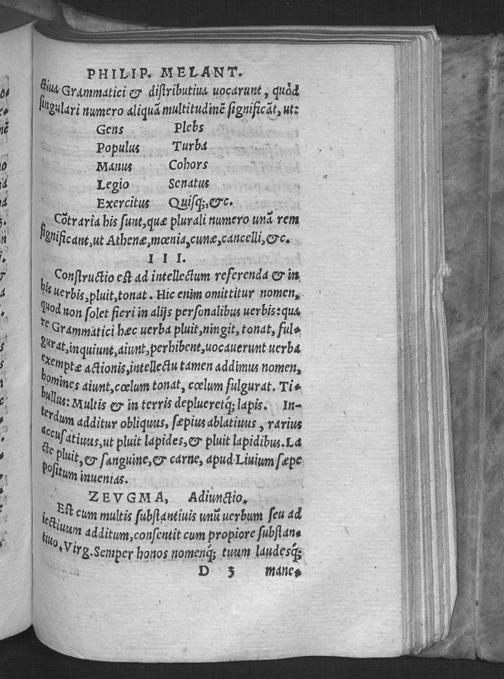 PHILIP. MELANT.
ctiua Grammatici & distributiua uocarunt, quòd
singulari numero aliquã multitudinē significãt, ut:
Gens Plebs
Populus Turba
Manus Cohors
Legio Senatus
Exercitus Quisq;, &c.
Cõtraria his sunt, quæ plurali numero unã rem
significant, ut Athenæ, mœnia, cunæ, cancelli, &c.
III.
Constructio est ad intellectum referenda & in
his uerbis, pluit, tonat. Hic enim omittitur nomen,
quod non solet fieri in alijs personalibus uerbis: qua
re Grammatici hæc uerba pluit, ningit, tonat, ful-
gurat, inquiunt, aiunt, perhibent, uocauerunt uerba
exemptæ actionis, intellectu tamen addimus nomen,
homines aiunt, cœlum tonat, cœlum fulgurat. Ti-
bullus: Multis & in terris deplueretq; lapis. In-
terdum additur obliquus, sæpius ablatiuus, rarius
accusatiuus, ut pluit lapides, & pluit lapidibus. La
cte pluit, & sanguine, & carne, apud Liuium sæpe
positum inuenias.
ZEVGMA, Adiunctio.
Est cum multis substantiuis unũ uerbum seu ad
iectiuum additum, consentit cum propiore substan-
tiuo. Virg. Semper honos nomenq; tuum laudesq;
D 3 mane-